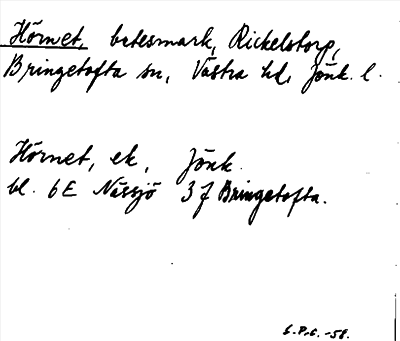 Hörnet, betesmark, Rickelstorp,
Bringetofta sn, Västra hd, Jönk. l.
Hörnet, ek, Jönk.
bl. 6E Nässjö 3 f Bringetofta.
G.P.G. -58.